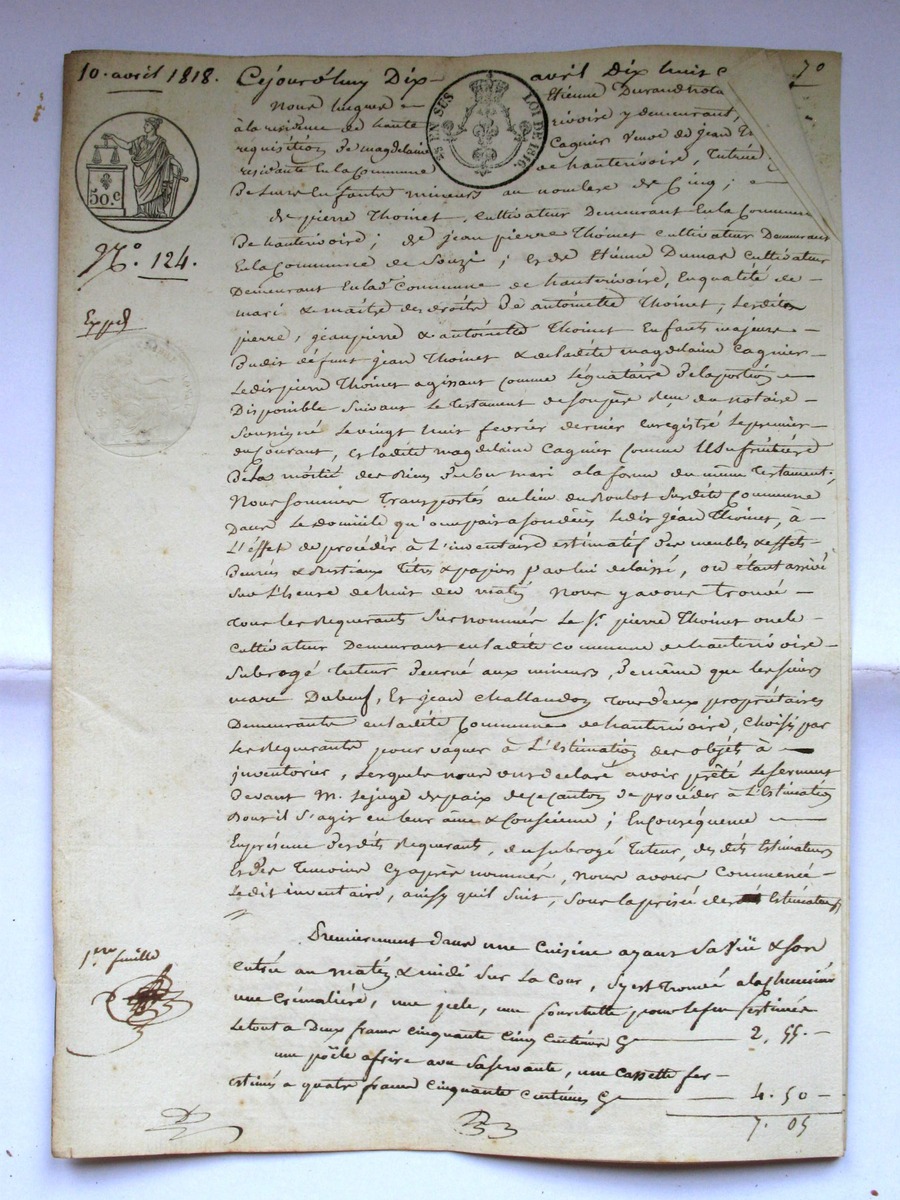 10. avril 1818.
Cejourd'huy Dix avril Dix huit c
70
Nous hugues Etienne Durand nota
à la residence de haute rivoire y demeurant,
requisition de magdelaine Cagnier veuve de jean T
residante En la Commune de hauterivoire, Tutrice
De Leurs Enfants mineurs au nombre de Cinq ;
25 EN SUS LOI DE 1816.
50.c
de pierre Thoinet, Cultivateur Demeurant En la Commune
De hauterivoire ; de jean pierre Thoinet Cultivateur Demeurant
En la Commune de Souzi ; et de Etienne Dumas Cultivateur
Nº. 124.
Demeurant En lad.e Commune de hauterivoire, En qualité de
mari & maitre des droits De antoinette Thoinet, Lesdits
Exped
pierre, jean pierre & antoinette Thoinet Enfants majeurs
Dudit défunt jean Thoinet & de ladite magdelaine Cagnier
Ledit pierre Thoinet agissant Comme Légataire De la portion
Disponible Suivant Le Testament de Son père Reçu du notaire
Soussigné Le vingt huit fevrier dernier enregistré Le premier
du Courant, et ladite magdelaine Cagnier Comme Usufruitière
De La moitié des Biens De son mari a la forme du même Testament ;
Nous Sommes Transportés au lieu du Boulot Susdite Commune
Dans Le domicile qu'occupait a son décès Ledit jean Thoinet, à
L'éffet de procéder à L'inventaire estimatif des meubles & effets
Denrés & Bestiaux Titres & papiers par lui délaissé, ou étant arrivé
Sur L'heure de huit du matin Nous y avons trouvé
Tous les Requerants Sus nommés Le S.r pierre Thoinet oncle
Cultivateur Demeurant en ladite commune de hauterivoire
Subrogé tuteur Decerné aux mineurs, De même que les sieurs
marc Dubeuf, Et jean Challandon Tous deux propriétaires
Demeurants en ladite Commune de hauterivoire, Choisis par
Les Requerants pour vaquer à L'Estimation des objets à
inventorier, Lesquels nous ont déclaré avoir prêté Le Serment
Devant M. Le juge de paix de ce canton de procéder à L'Estimation
Dont il S'agit en leur âme & Conscience ; En Conséquence
En présence desdits Requerants, du Subrogé Tuteur, desdits Estimateurs
Et des Temoins Cy après nommés, Nous avons Commencé
Ledit inventaire, ainsy quil Suit, Sous la prisée des Estimateurs
1.ere feuille
Premierement dans une Cuisine ayant Sa Vüe & Son
Entrée au matin & midi Sur La Cour, S'y est Trouvé a la Cheminée
une Crémaliére, une pele, une fourchette pour le feu Estimés
Le tout a Deux francs Cinquante Cinq Centimes Cy 2, 55.
une pöele a frire avec Sa Servante, une Cassette fer
estimés a quatre francs Cinquante Centimes Cy 4. 50
7. 05